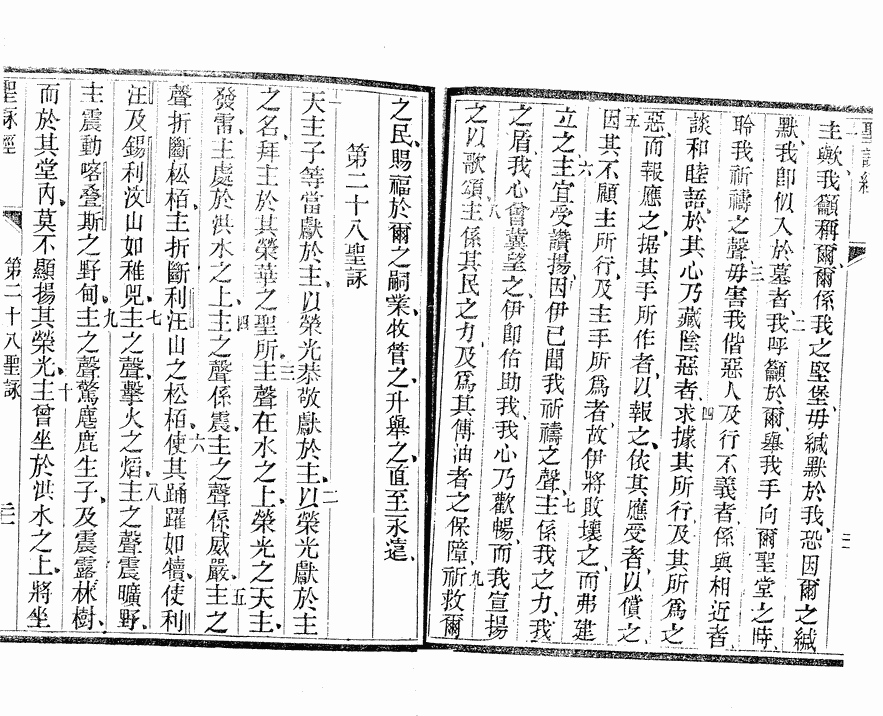 聖詠經
主歟我籲稱爾爾係我之堅堡毋緘默於我恐因爾之緘
默我即似入於墓者二我呼籲於爾舉我手向爾聖堂之時
聆我祈禱之聲三毋害我偕惡人及行不義者係與相近者
談和睦語於其心乃藏陰惡者四求據其所行及其所為之
惡而報應之据其手所作者以報之依其應受者以償之
五因其不顧主所行及主手所為者故伊將敗壞之而弗建
立之六主宜受讚揚因伊已聞我祈禱之聲七主係我之力我
之盾我心曾冀望之伊即佑助我我心乃歡暢而我宣揚
之以歌頌八主係其民之力及為其傅油者之保障九祈救爾
之民賜福於爾之嗣業牧管之升舉之直至永遠
第二十八聖詠
一天主子等當獻於主以榮光恭敬獻於主二以榮光獻於主
之名拜主於其榮華之聖所三主聲在水之上榮光之天主
發雷主處於洪水之上四主之聲係震主之聲係威嚴五主之
聲折斷松栢主折斷利汪山之松栢六使其踊躍如犢使利
汪及錫利汶山如稚兕七主之聲擊火之熖八主之聲震曠野
主震動喀疊斯之野甸九主之聲驚麀鹿生子及震露林樹
而於其堂內莫不顯揚其榮光十主曾坐於洪水之上將坐
聖詠經
第二十八聖詠